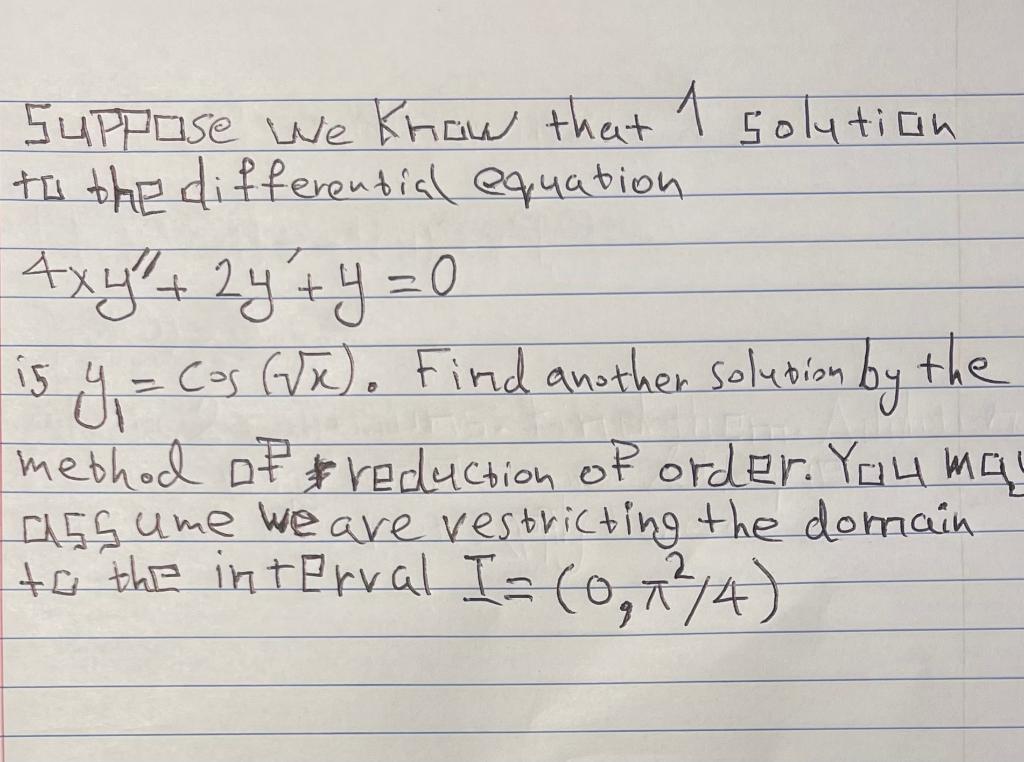 Suppose we Know that 1 solution
to the differential equation
4xy" + 2y' + y = 0
is y₁ = cos (√x). Find another solution by the
method of reduction of order. You may
assume we are restricting the domain
to the interval I = (0, π²/4)